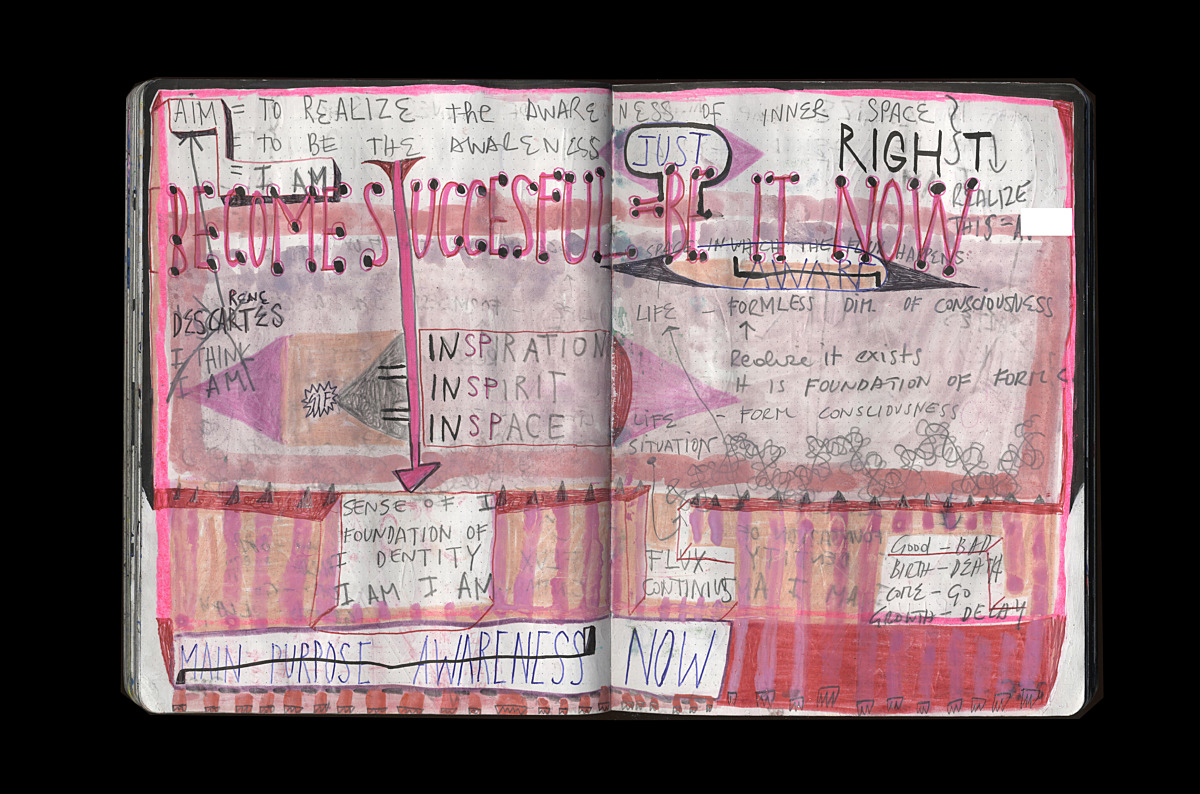 AIM = TO REALIZE the AWARENESS OF INNER SPACE
= TO BE THE AWARENESS
= I AM
JUST
RIGHT
BECOME SUCCESFUL = BE IT NOW
REALIZE
THIS =
SPACE IN WHICH THE FLUX HAPPENS:
AWARE
RENE
DESCARTES
I THINK
I AM
LIFE - FORMLESS DIM. OF CONSCIOUSNESS
Realize it exists
It IS FOUNDATION OF FORM
INSPIRATION
INSPIRIT
INSPACE
LIFE - FORM CONSCIOUSNESS
SITUATION
SENSE OF I
FOUNDATION OF
I DENTITY
I AM I AM
FLUX
CONTINIUS
Good - BAD
BIRTH - DEATH
COME - GO
GROWTH - DECAY
MAIN PURPOSE AWARENESS NOW